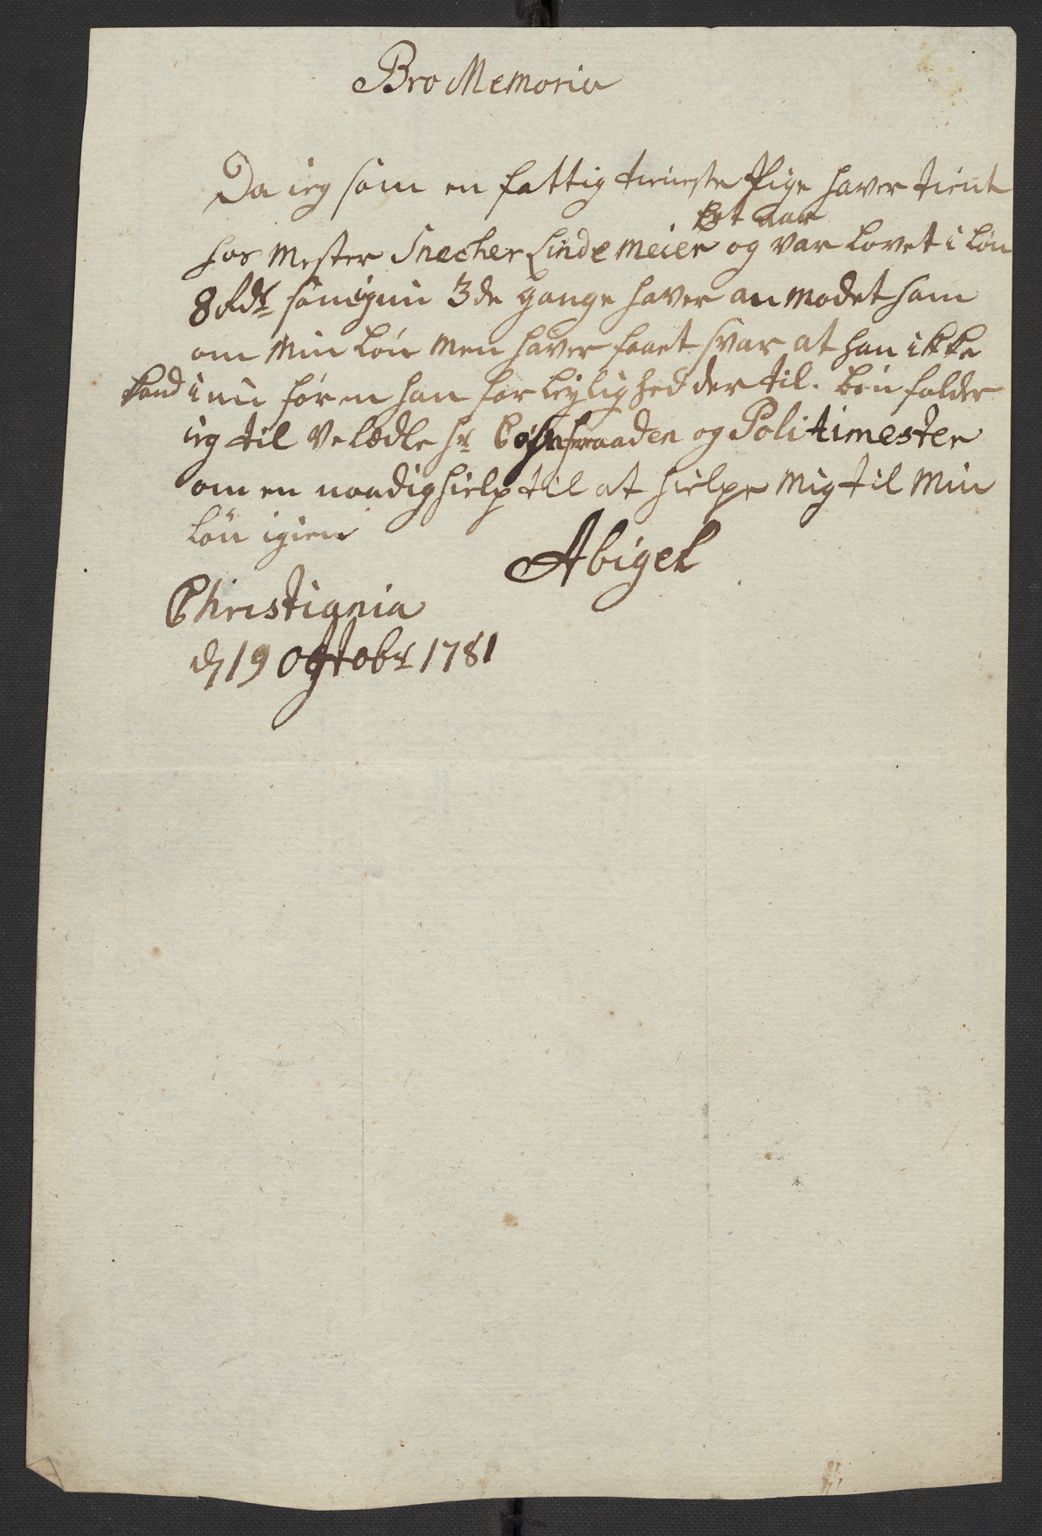 Bro Memoria
Da ieg som en fattig tieneste Pige haver tient
Et aar
hos Mester Snecher Lindemeier og var lovet i løn
8 Rdr som ieg nu 3de gange haver an modet ham
om Min Løn Men haver faaet svar at han ikke
kand i nu før en han faar leylighed der til. bøn falder
ieg til Velædle hr og Politimester
om en naadig hielp til at hielpe Mig til Min
løn igien
Abigel
Christiania
d 19 Ogtobr 1781